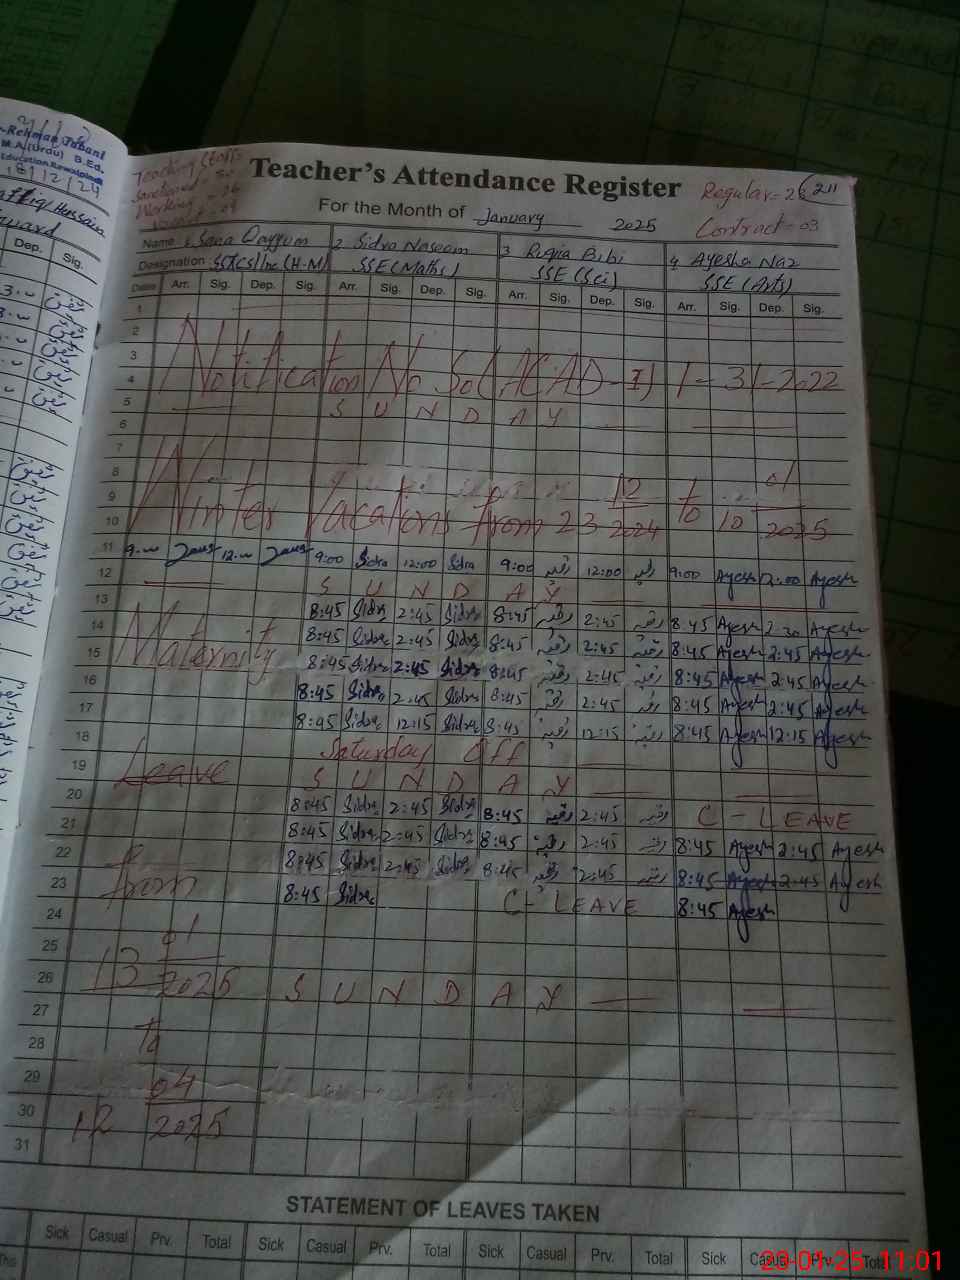 -Rehman Jabani
M.A.(Urdu) B.Ed.
Education Rawalpindi
18/12/24
Hussain
Dep. Sig.
Teaching Staff
Working
Teacher's Attendance Register
Regular = 26
Contract = 03
For the Month of January 2025
Name 1 Sana Qayyum 2 Sidra Naseem 3 Ruqia Bibi 4 Ayesha Naz
Designation SSE(Maths) SSE(Sci) SSE(Arts)
Dates Arr. Sig. Dep. Sig. Arr. Sig. Dep. Sig. Arr. Sig. Dep. Sig. Arr. Sig. Dep. Sig.
1
2
3
4 Notification No So(ACAD-I) 1-31-2022
5 S U N D A Y
6
7
8
9
10 Winter Vacations from 23 12/2024 to 10 01/2025
11 9:00 12:00 9:00 Sidra 12:00 Sidra 9:00 رقیہ 12:00 رقیہ 9:00 Ayesh 12:00 Ayesh
12 S U N D A Y
13 8:45 Sidra 2:45 Sidra 8:45 رقیہ 2:45 رقیہ 8:45 Ayesh 2:30 Ayesh
14 8:45 Sidra 2:45 Sidra 8:45 رقیہ 2:45 رقیہ 8:45 Ayesh 2:45 Ayesh
15 Maternity 8:45 Sidra 2:45 Sidra 8:45 رقیہ 2:45 رقیہ 8:45 Ayesh 2:45 Ayesh
16 8:45 Sidra 2:45 Sidra 8:45 رقیہ 2:45 رقیہ 8:45 Ayesh 2:45 Ayesh
17 8:45 Sidra 12:15 Sidra 8:45 رقیہ 12:15 رقیہ 8:45 Ayesh 12:15 Ayesh
18 Saturday Off
19 Leave S U N D A Y
20 8:45 Sidra 2:45 Sidra 8:45 رقیہ 2:45 رقیہ C - LEAVE
21 8:45 Sidra 2:45 Sidra 8:45 رقیہ 2:45 رقیہ 8:45 Ayesh 2:45 Ayesh
22 8:45 Sidra 2:45 Sidra 8:45 رقیہ 2:45 رقیہ 8:45 Ayesh 2:45 Ayesh
23 from 8:45 Sidra C - LEAVE 8:45 Ayesh
24
25
26 13 01/2025 S U N D A Y
27
28 To
29
30 12 04/2025
31
STATEMENT OF LEAVES TAKEN
Sick Casual Prv. Total Sick Casual Prv. Total Sick Casual Prv. Total Sick Casual Prv. Total
This
23-01-25 11:01